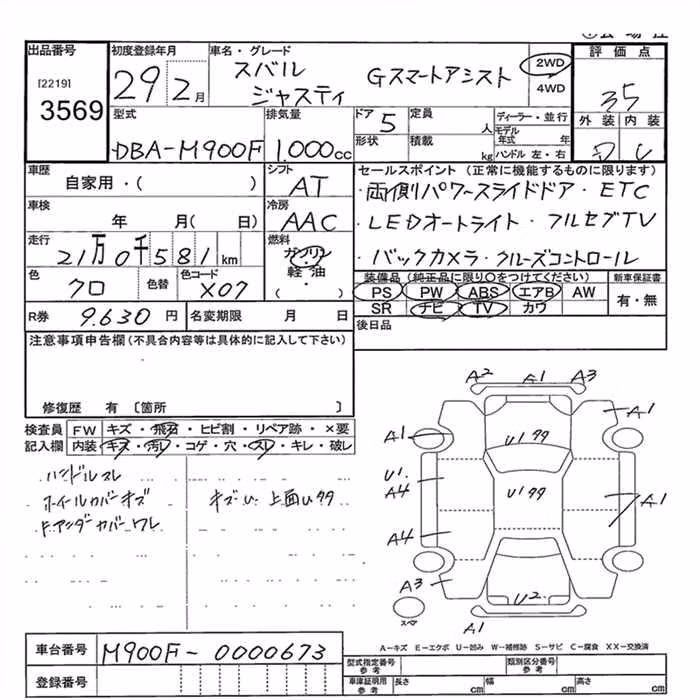 出品番号
[2219]
3569
初度登録年月
29 2月
車名・グレード
スバル
ジャスティ
Gスマートアシスト
2WD
4WD
評価点
35
型式
DBA-M900F
排気量
1.000cc
ドア 5
定員
人
ディーラー・並行
モデル年式 年
形状
積載
kg
ハンドル 左・右
外装 内装
D C
車歴
自家用・( )
シフト
AT
セールスポイント (正常に機能するものに限ります)
両側パワースライドドア・ETC
車検
年 月( 日)
冷房
AAC
LEDオートライト・フルセグTV
走行
21万0千581km
燃料
ガソリン
軽油
・( )
バックカメラ・クルーズコントロール
色
クロ
色替
色コード
X07
装備品 (純正品に限り○をつけてください)
新車保証書
PS PW ABS エアB AW
有・無
SR ナビ TV カワ
R券 9.630円
名変期限 月 日
後日品
注意事項申告欄(不具合内容等は具体的に記入して下さい)
修復歴 有 〔箇所 〕
検査員 FW キズ・飛石・ヒビ割・リペア跡・×要
記入欄 内装 キズ・汚レ・コゲ・穴・スレ・キレ・破レ
ハンドルスレ
ホイールカバーキズ
F.アンダーカバーワレ
キズU 上面Uタタ
A2 A1 A3
A1
A1 U1タタ
U1.
A4 U1タタ A1
A4
A3 U2.
スペア
A1
A-キズ E-エクボ U-凹み W-補修跡 S-サビ C-腐食 XX-交換済
車台番号 M900F-0000673
登録番号
型式指定番号 参考
類別区分番号 参考
車庫証明用 参考
長さ cm 幅 cm 高さ cm